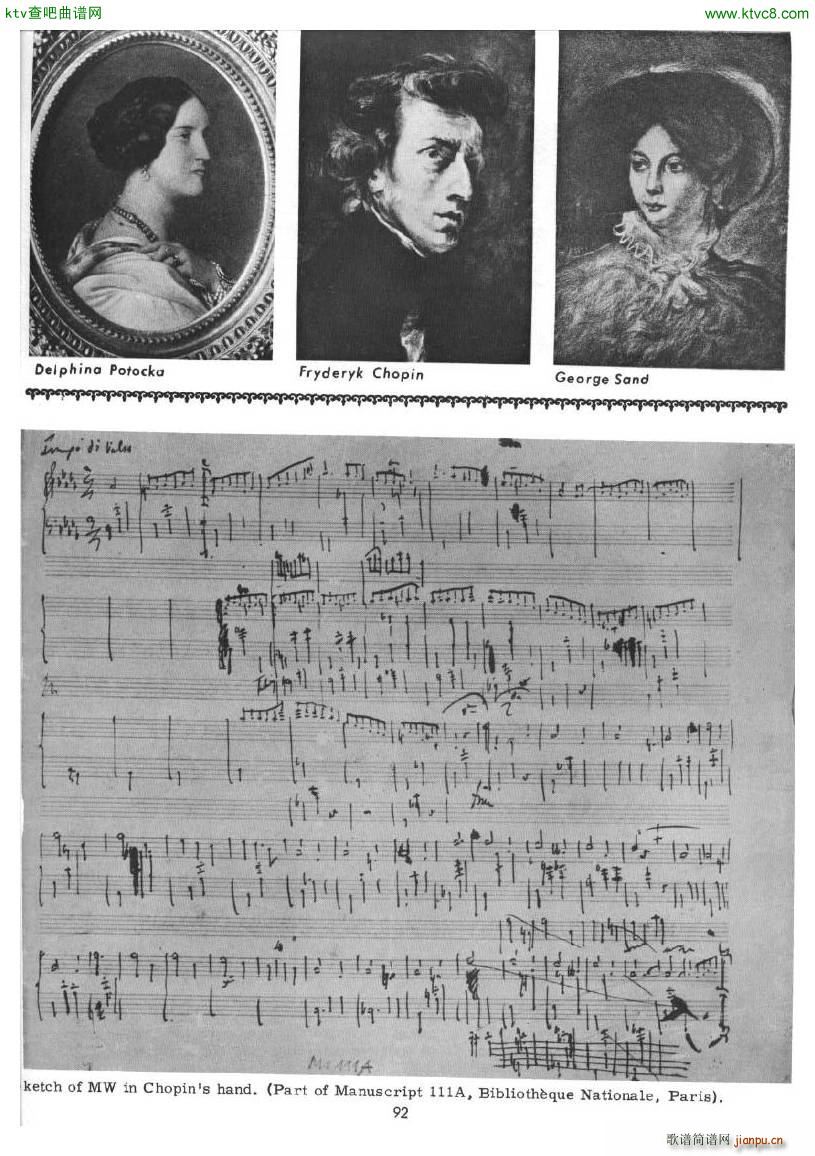 ktv查吧曲谱网
www.ktvc8.com
Delphina Potocka
Fryderyk Chopin
George Sand
ketch of MW in Chopin's hand. (Part of Manuscript 111A, Bibliothèque Nationale, Paris).
92
歌谱简谱网 jianpu.cn